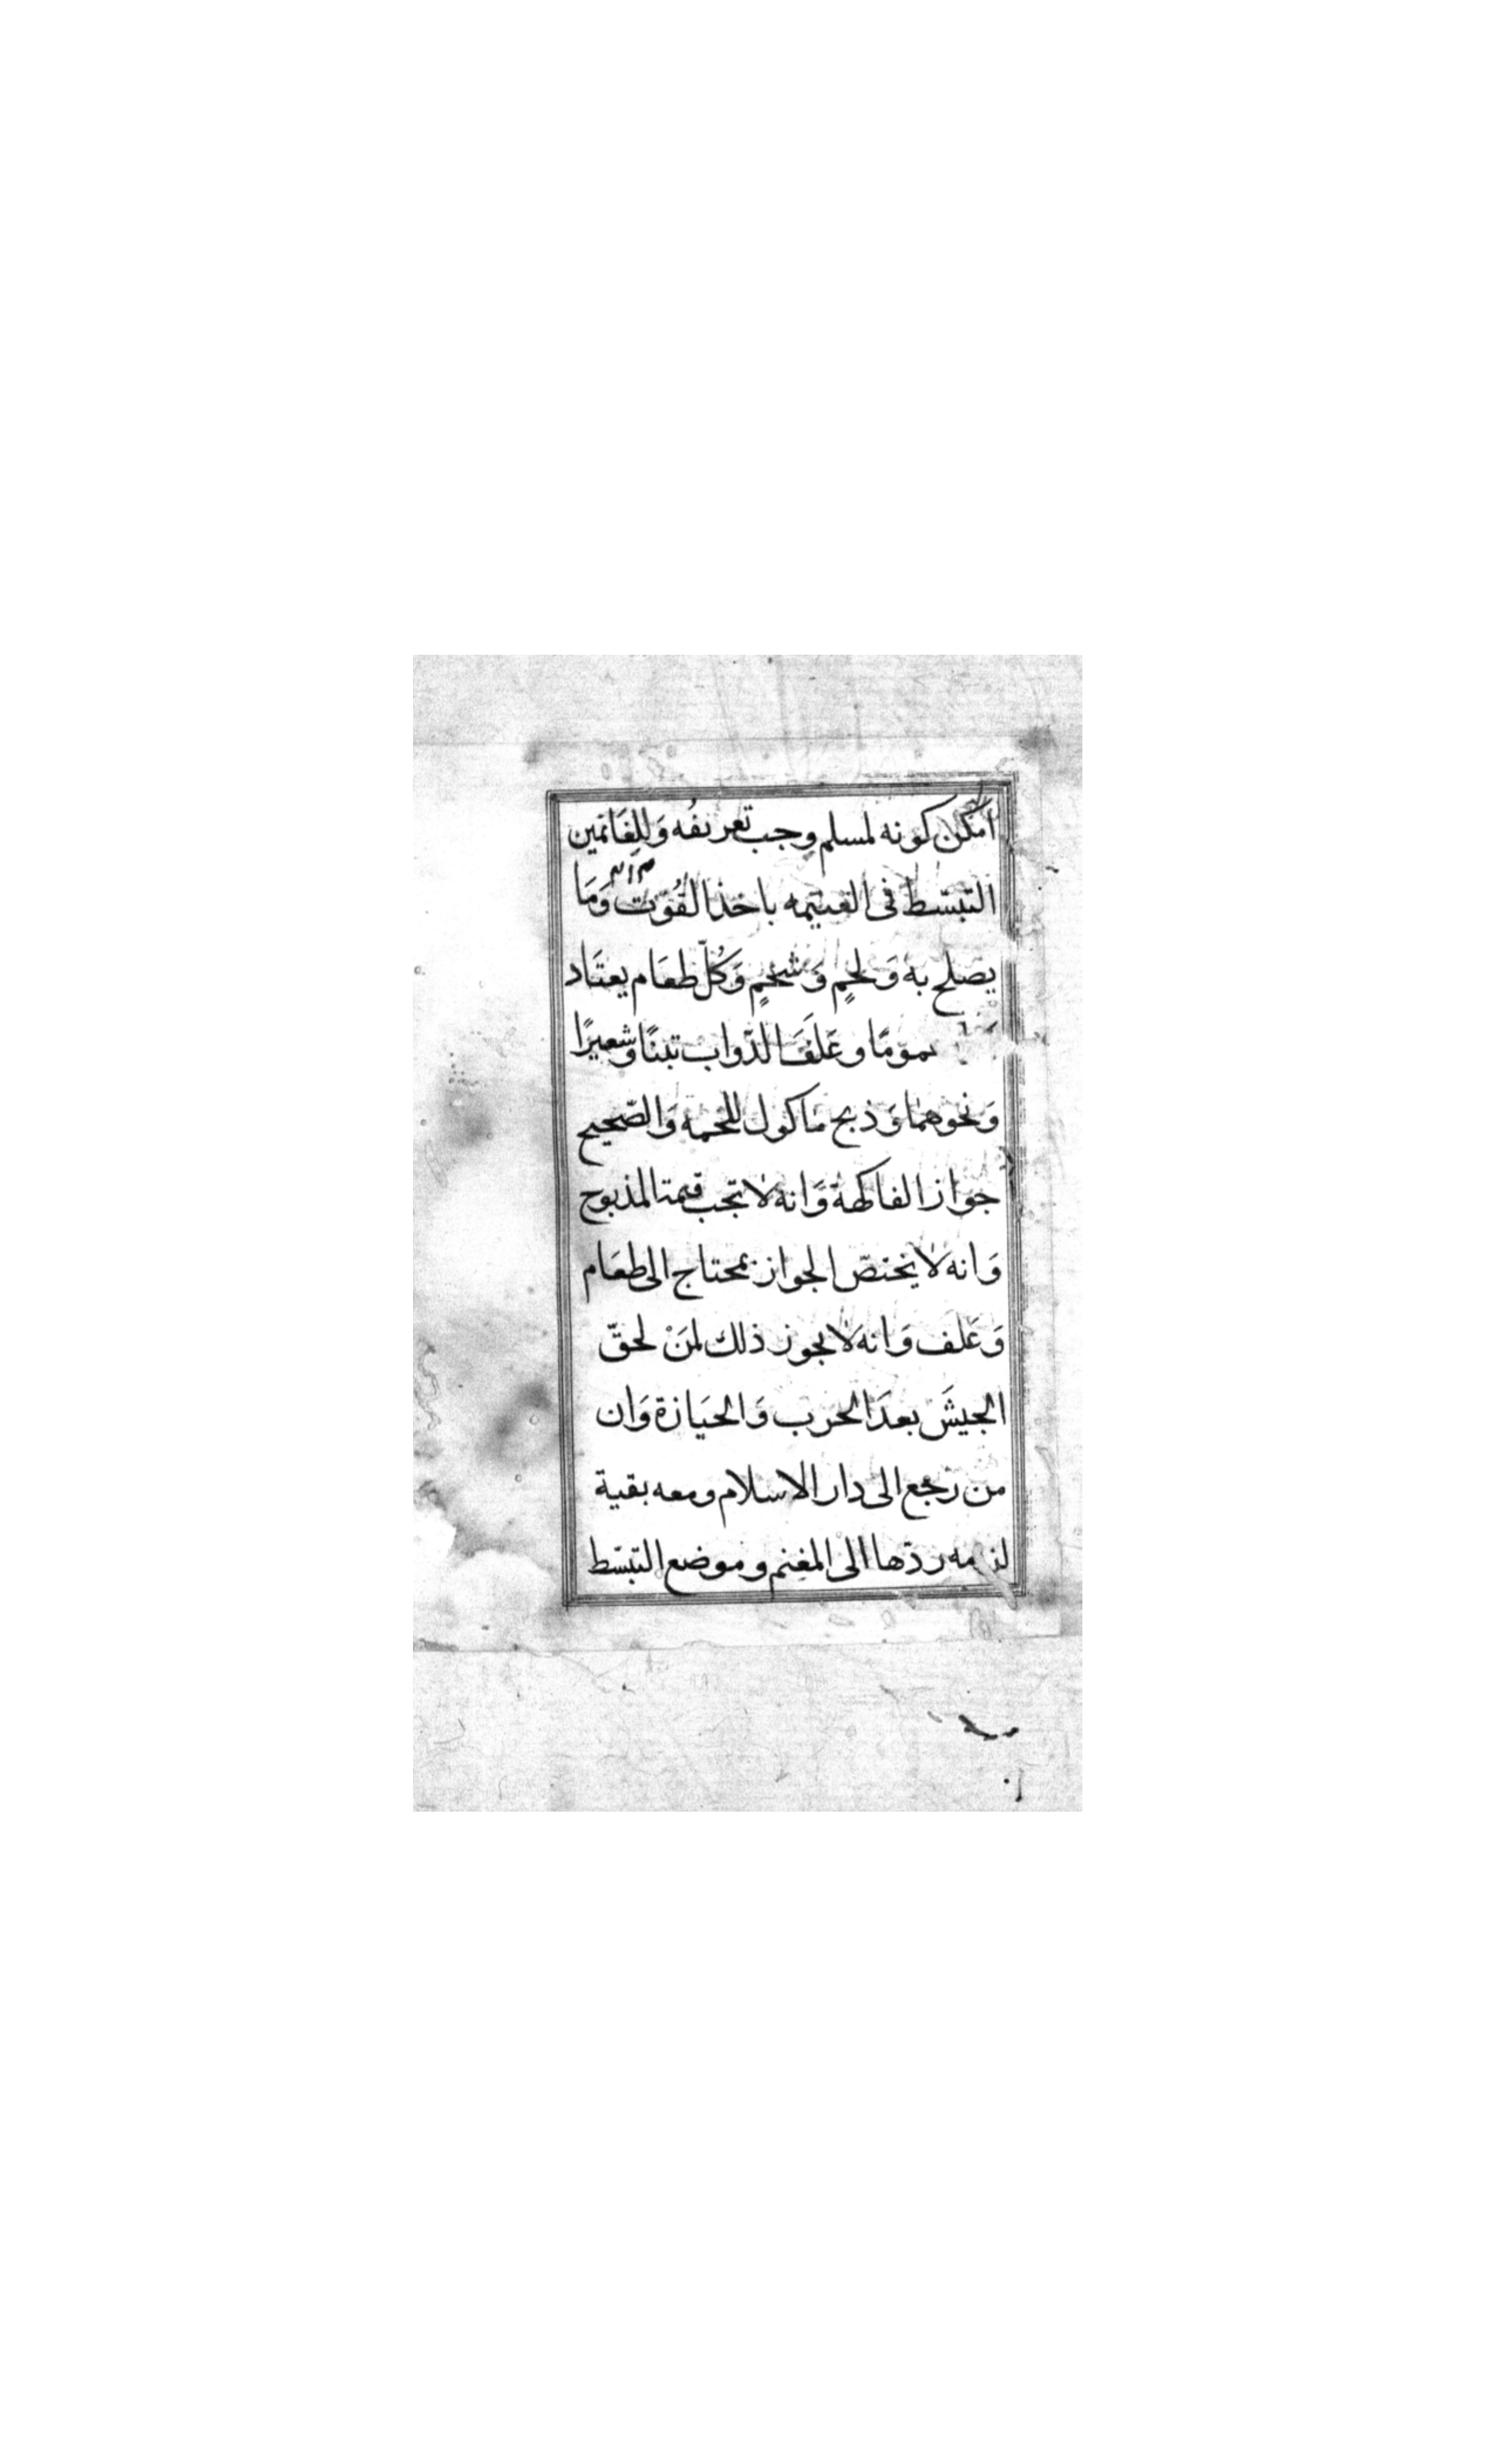 امكن كونه لمسلم وجب تعريفُه وَللِغَانمين
التبسّط فى الغنيمه باخذ القُوّت وَمَا
يصلح به وَلحمٍ وَشحمٍ وَكُلّ طعَام يعتَاد
عمومًا وعَلفَ الدّواب تبنًا وشعيرًا
وَنحوهمَا وَذبح مَاكول للحمه وَالصّحيح
جواز الفاكهة وَانه لا تجب قيمة المذبوح
وَانه لا يختصّ الجواز بمحتاج الى طعَام
وَعَلف وَانه لا يجوز ذلك لمَنْ لحقّ
الجيشَ بعدَ الحرب وَالحيَازة وَان
من رجع الى دار الاسلام ومعه بقية
لزمه ردّها الى المغنم وموضع التبسّط